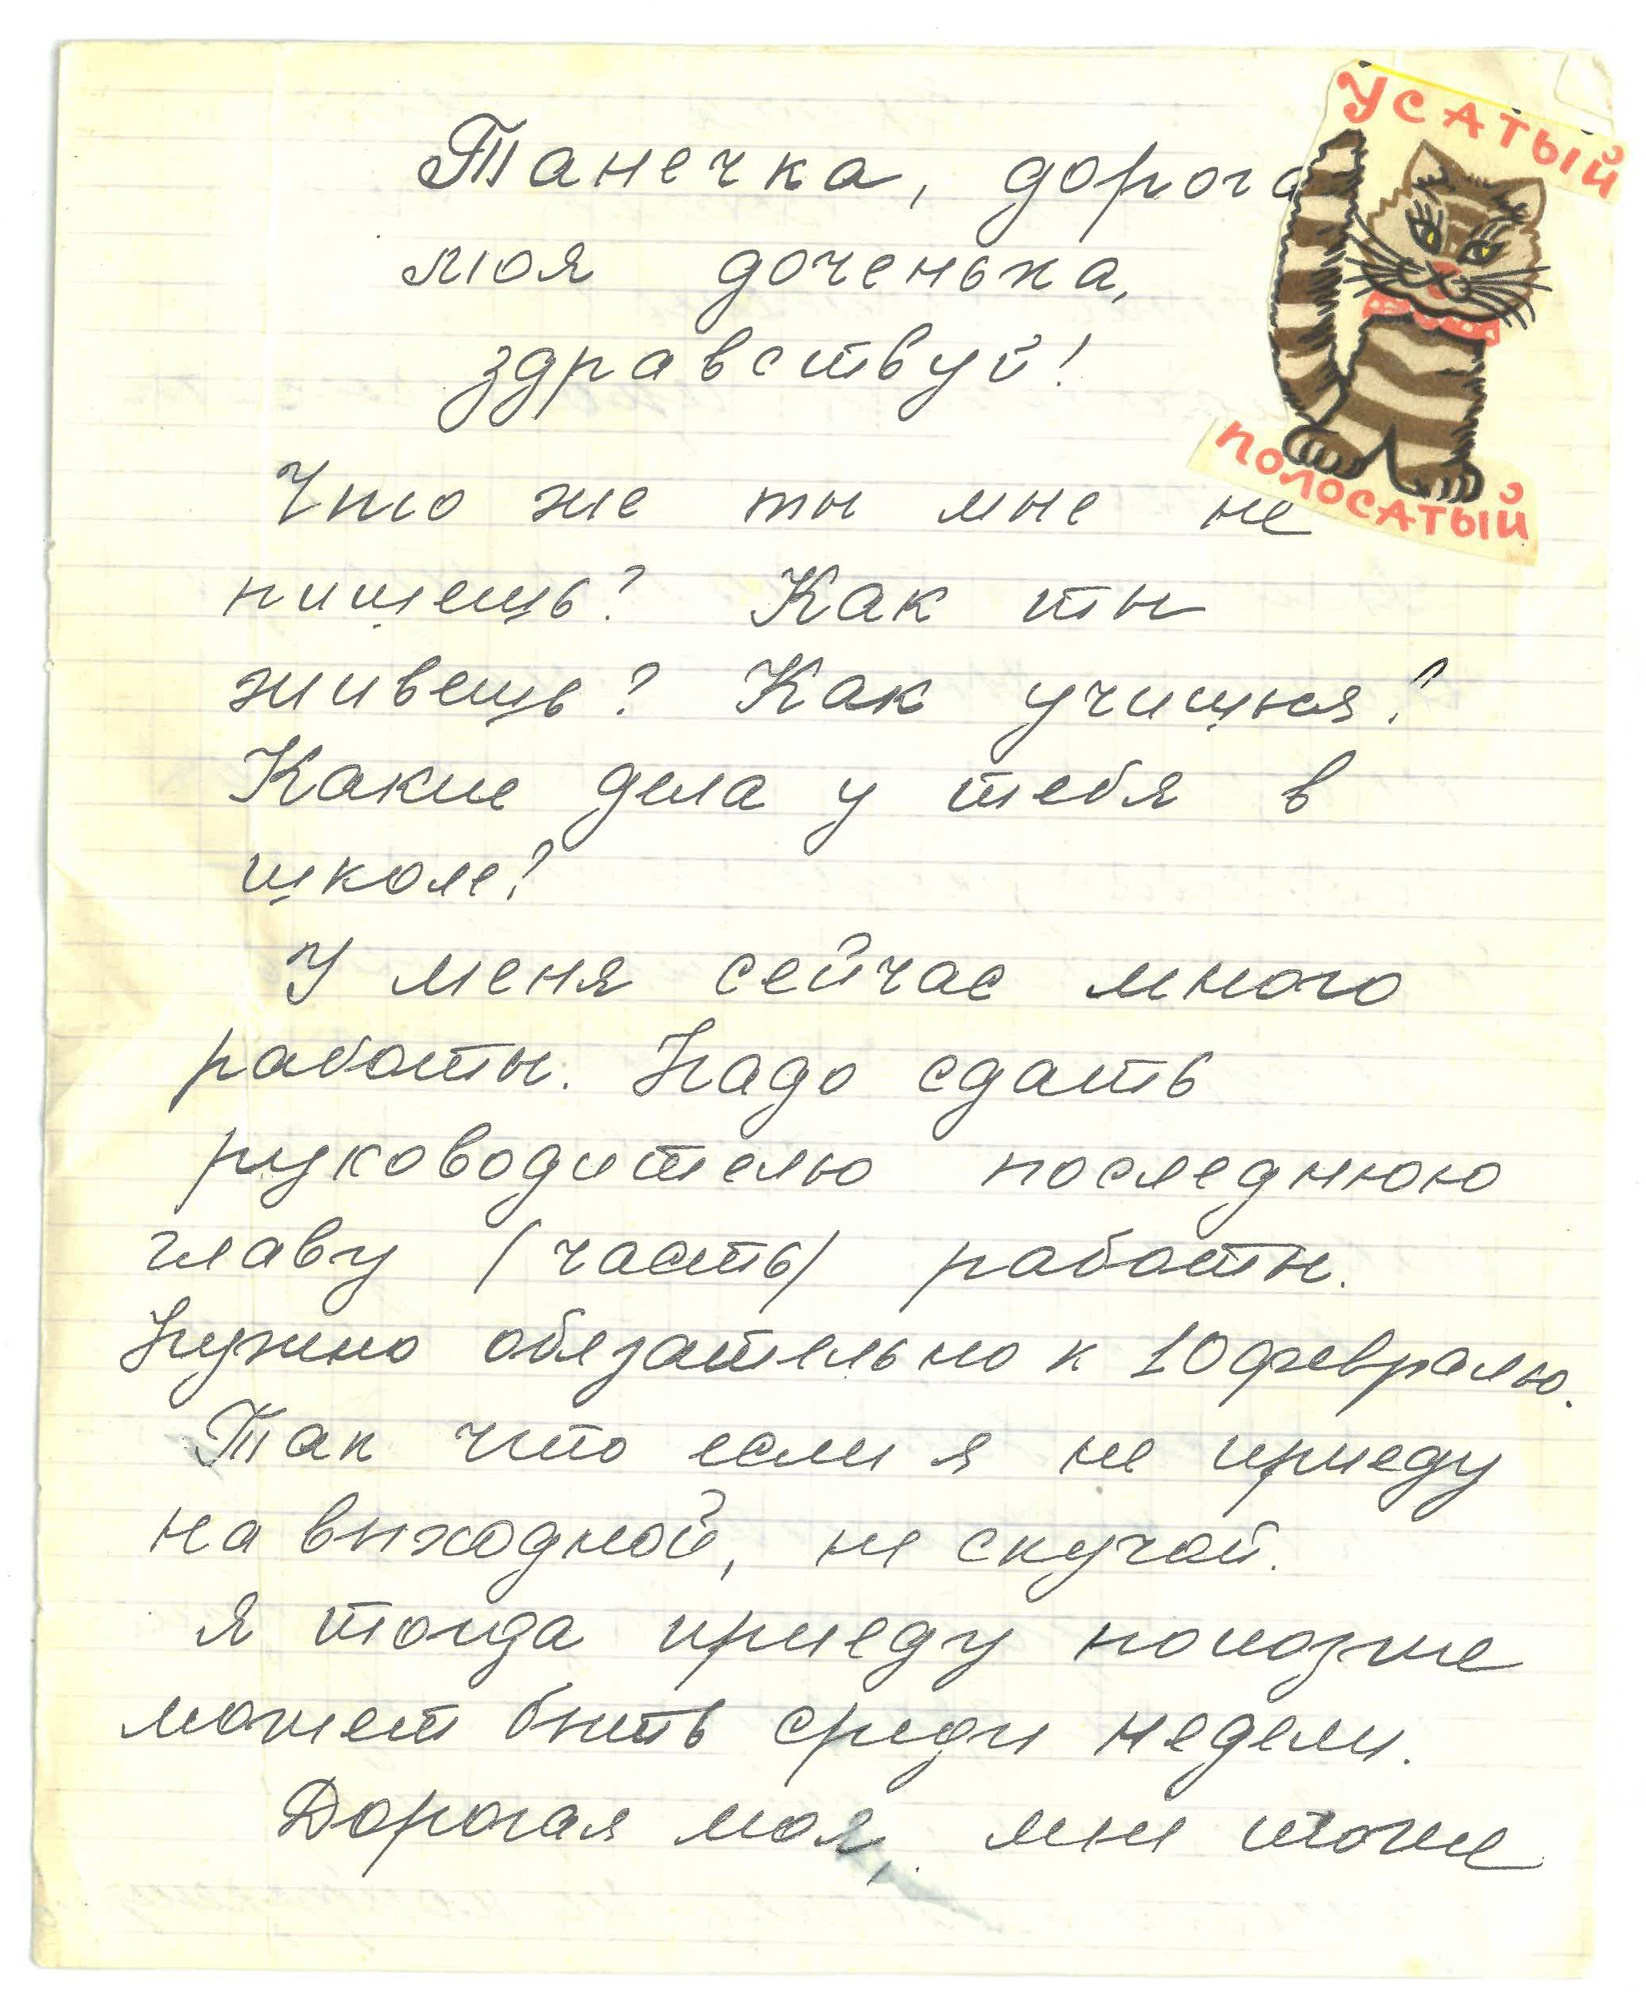 УСАТЫЙ
Танечка, дорога
моя доченька,
здравствуй!
ПОЛОСАТЫЙ
Что же ты мне не
пишешь? Как ты
живешь? Как учишься?
Какие дела у тебя в
школе?
У меня сейчас много
работы. Надо сдать
руководителю последнюю
главу (часть) работы.
Нужно обязательно к 10 февралю.
Так что если я не приеду
на выходной, не скучай.
Я тогда приеду попозже
может быть среди недели.
Дорогая моя, мы тоже